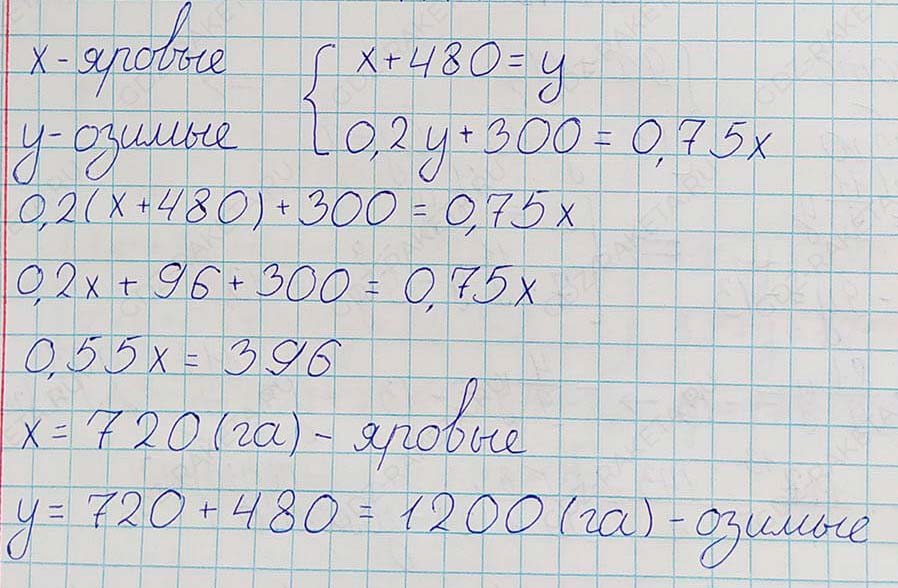 x - яровые { x + 480 = y
y - озимые 0,2y + 300 = 0,75x
0,2(x + 480) + 300 = 0,75x
0,2x + 96 + 300 = 0,75x
0,55x = 396
x = 720 (га) - яровые
y = 720 + 480 = 1200 (га) - озимые